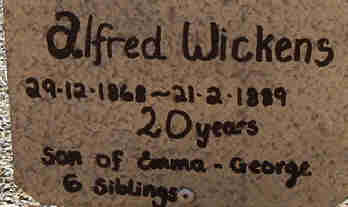 alfred Wickens
29.12.1868~21.2.1889
20 years
son of Emma - George
6 siblings.